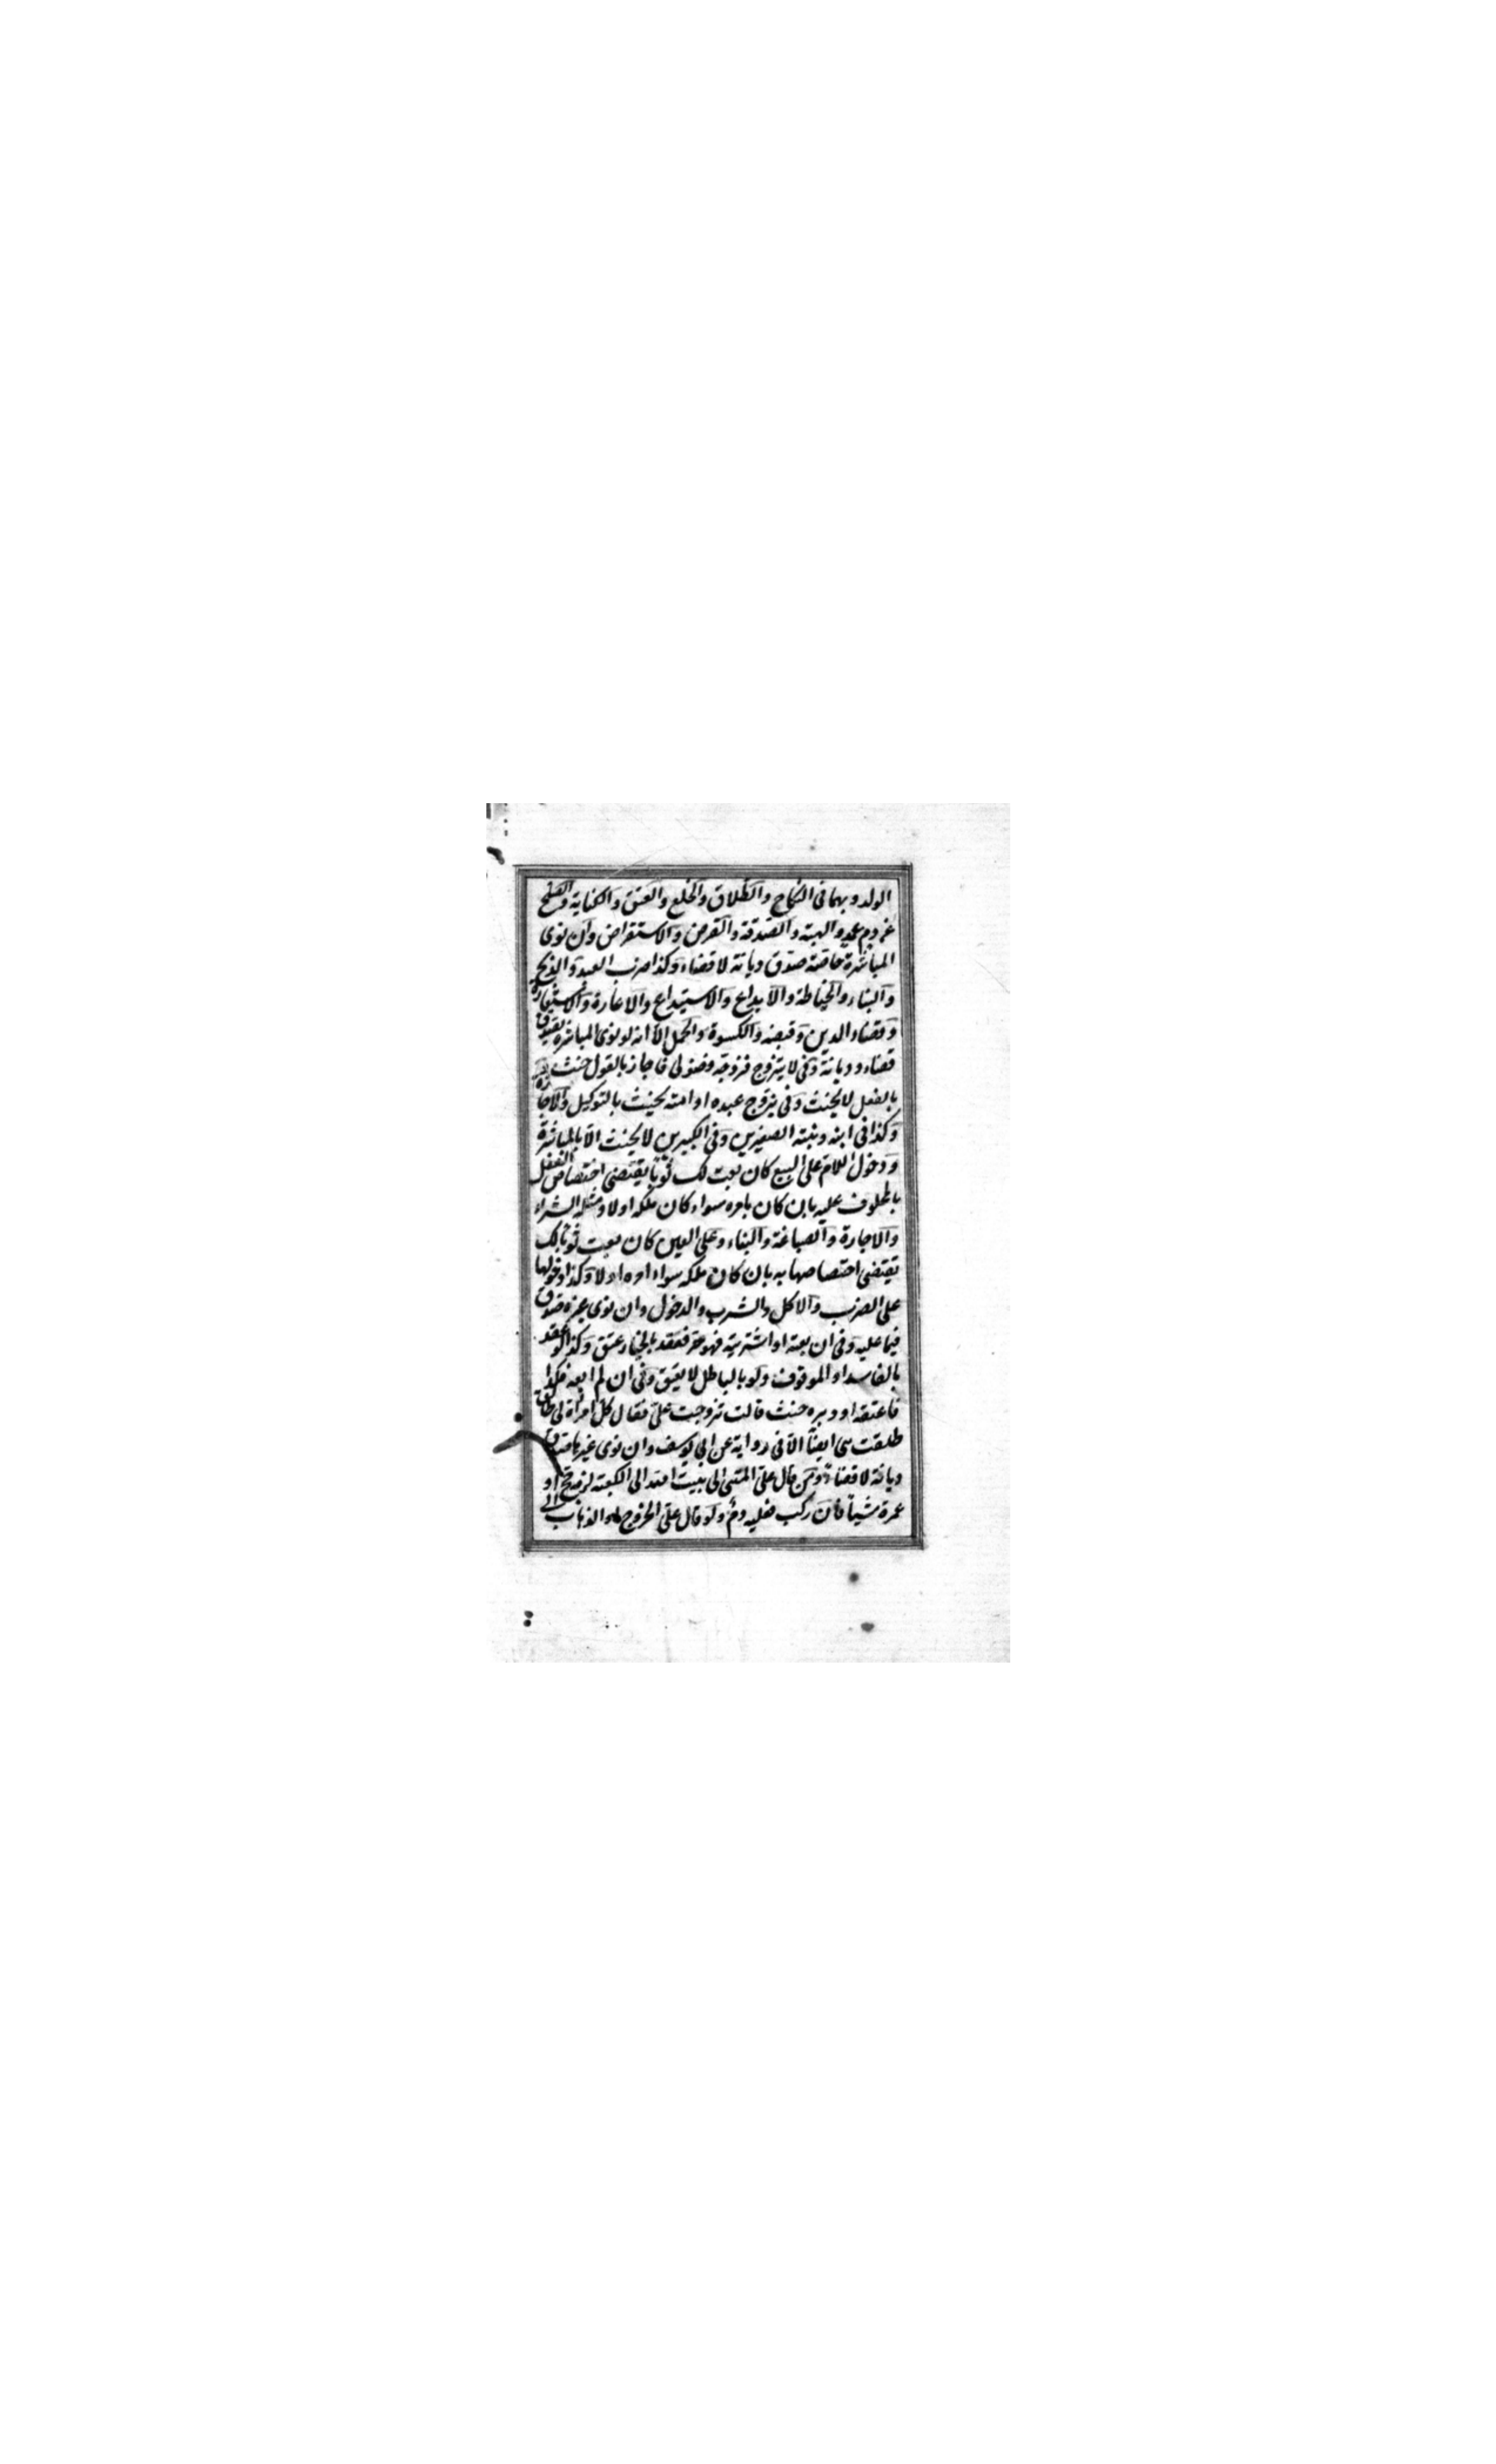 الولد وبهما فى النكاح والطلاق والخلع والعتق والكتابة والصلح
عن دم عمد والهبة والصدقة والقرض والاستقراض وان نوى
المباشرة خاصة صدق ديانة لا قضاء وكذا ضرب العبد والذبح
والبناء والخياطة والايداع والاستيداع والاعارة والاستعارة
وقضاء الدين وقبضه والكسوة والحمل الا انه لو نوى المباشرة يصدق
قضاء وديانة وفى لا يتزوج فزوجه فضولى فاجاز بالقول حنث
بالفعل لا يحنث وفى يزوج عبده او امته يحنث بالتوكيل والاجازة
وكذا فى ابنه وبنته الصغيرين وفى الكبيرين لا يحنث الا بالمباشرة
ودخول اللام على البيع كان بعت لك ثوبا يقتضى اختصاص الفعل
بالمحلوف عليه بان كان بامره سواء كان ملكه اولا ومثله الشراء
والاجارة والصباغة والبناء وعلى العين كان بعت ثوبا لك
يقتضى اختصاصها به بان كان ملكه سواء امره اولا وكذا دخولها
على الضرب والاكل والشرب والدخول وان نوى غيره صدق
فيما عليه وفى ان بعته او اشتريته فهو حر فعقد بالخيار عتق وكذا لو عقد
بالفاسد او الموقوف ولو بالباطل لا يعتق وفى ان لم ابعه فكذا
فاعتقه او دبره حنث قالت تزوجت على فقال كل امراة لى طالق
طلقت هى ايضا الا فى رواية عن ابى يوسف وان نوى غيرها صدق
ديانة لا قضاء ومن قال على المشى الى بيت الله او الى الكعبة لزمه حج او
عمرة مشيا فان ركب فعليه دم ولو قال على الخروج او الذهاب الى